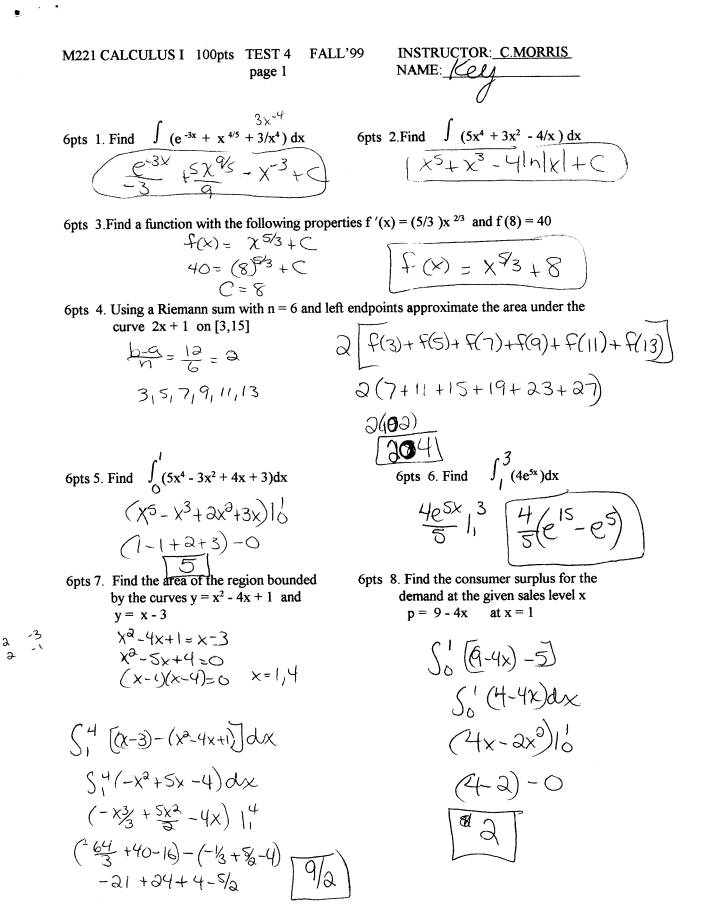 M221 CALCULUS I 100pts TEST 4 FALL'99 INSTRUCTOR: C.MORRIS
page 1 NAME: Key
3x⁻⁴
6pts 1. Find ∫ (e ⁻³ˣ + x ⁴ᐟ⁵ + 3/x⁴) dx
e⁻³ˣ/-3 + 5x⁹ᐟ⁵/9 - x⁻³ + C
6pts 2.Find ∫ (5x⁴ + 3x² - 4/x ) dx
x⁵ + x³ - 4ln|x| + C
6pts 3.Find a function with the following properties f ′(x) = (5/3 )x ²ᐟ³ and f (8) = 40
f(x) = x⁵ᐟ³ + C
40 = (8)⁵ᐟ³ + C
C = 8
f(x) = x⁵ᐟ³ + 8
6pts 4. Using a Riemann sum with n = 6 and left endpoints approximate the area under the
curve 2x + 1 on [3,15]
b-a/n = 12/6 = 2
3, 5, 7, 9, 11, 13
2[f(3) + f(5) + f(7) + f(9) + f(11) + f(13)]
2(7 + 11 + 15 + 19 + 23 + 27)
2(102)
204
6pts 5. Find ∫₀¹ (5x⁴ - 3x² + 4x + 3)dx
(x⁵ - x³ + 2x² + 3x)|₀¹
(1 - 1 + 2 + 3) - 0
5
6pts 6. Find ∫₁³ (4e⁵ˣ )dx
4e⁵ˣ/5 |₁³
4/5(e¹⁵ - e⁵)
6pts 7. Find the area of the region bounded
by the curves y = x² - 4x + 1 and
y = x - 3
2 -3
2 -1
x² - 4x + 1 = x - 3
x² - 5x + 4 = 0
(x - 1)(x - 4) = 0 x = 1, 4
∫₁⁴ [(x-3) - (x² - 4x + 1)]dx
∫₁⁴ (-x² + 5x - 4)dx
(-x³/3 + 5x²/2 - 4x) |₁⁴
(-64/3 + 40 - 16) - (-1/3 + 5/2 - 4)
-21 + 24 + 4 - 5/2
9/2
6pts 8. Find the consumer surplus for the
demand at the given sales level x
p = 9 - 4x at x = 1
∫₀¹ [(9-4x) - 5]
∫₀¹ (4-4x)dx
(4x - 2x²)|₀¹
(4-2) - 0
2